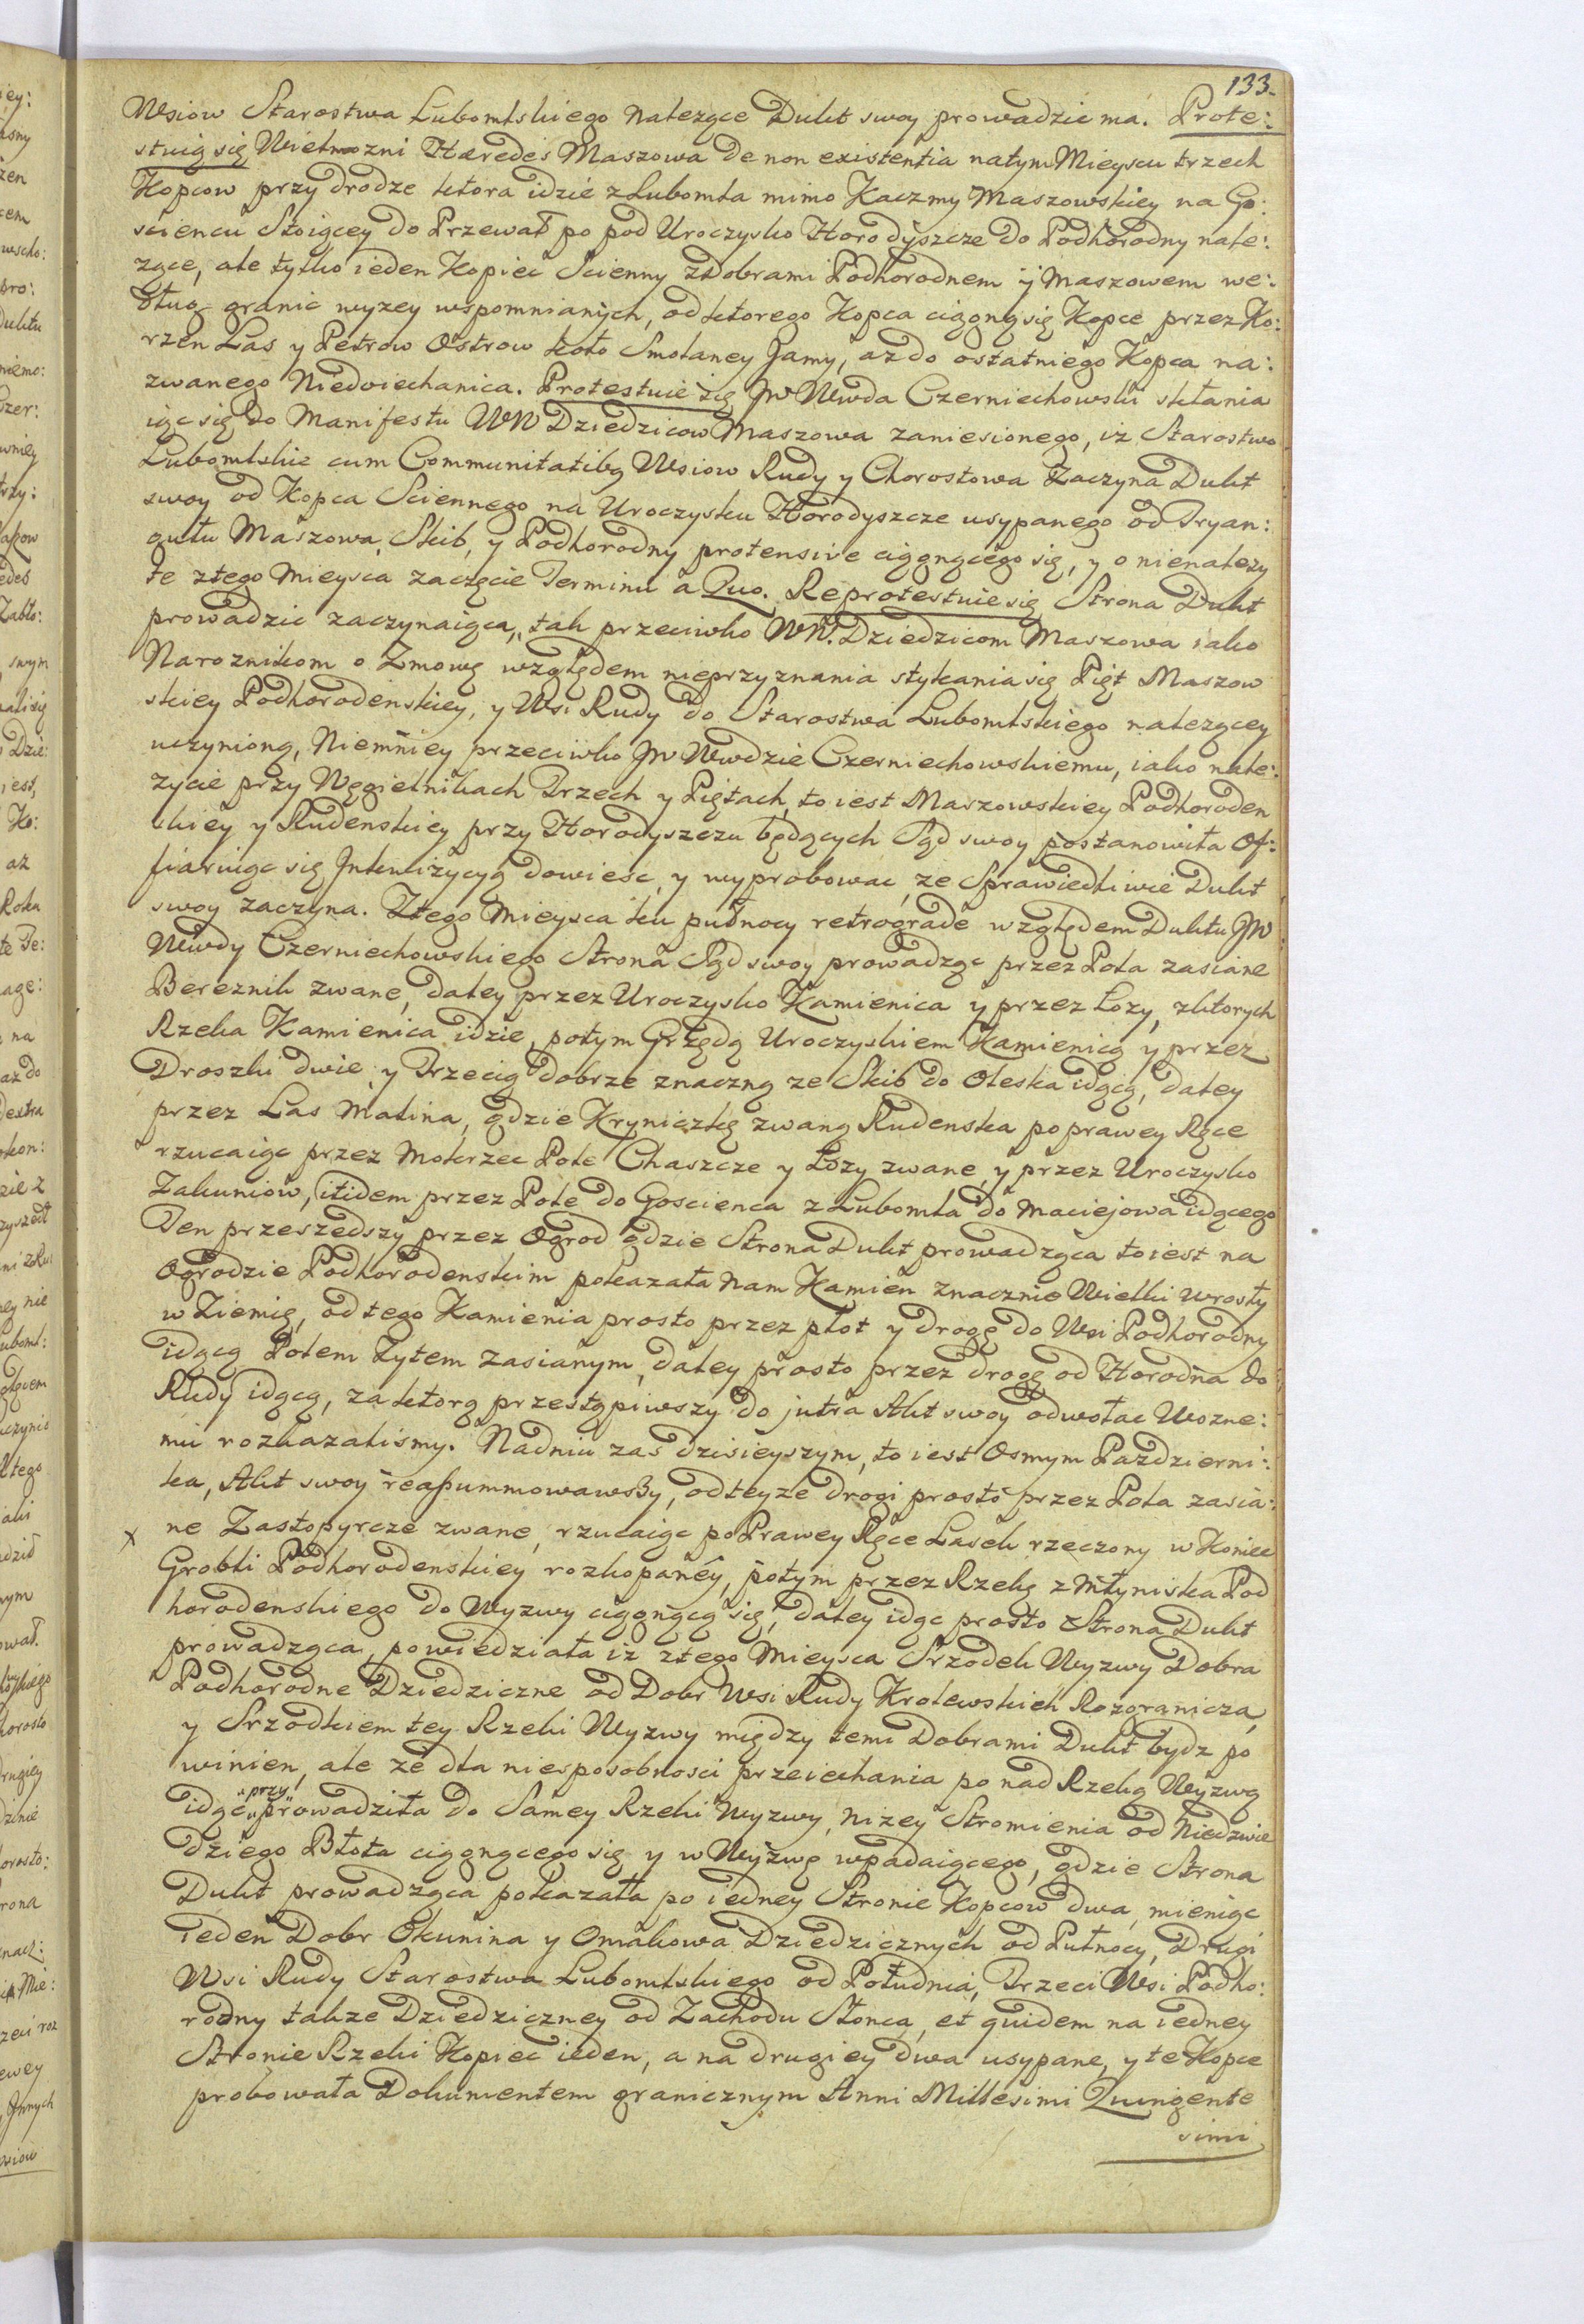 133.
Wsiow Starostwa Lubomlskiego należące Dukt swoy prowadzić ma. Prote:
stuią się Wielmożni Hæredes Maszowa de non existentia natym Mieyscu trzech
Kopcow przy drodze ktora idzie z Lubomla mimo Kaczmy Maszowskiey na Go:
scieńcu Stoiącey do Przewał po pod Uroczysko Horodyszcze do Podhorodny nale:
zące, ale tylko ieden Kopiec Scienny z Dobrami Podhorodnem y Maszowem we:
dług granic wyzey wspomnianych, od ktorego Kopca ciągną się Kopce przez Ko:
rzen Las y Petrow Ostrow koło Smolaney Jamy, az do ostatniego Kopca na:
zwanego Niedwiechanica. Protestuie się JW Wwda Czerniechowski skłania
iąc się do Manifestu WW Dziedzicow Maszowa zaniesionego, iż Starostwo
Lubomlskie cum Communitatibq Wsiow Rudy y Chorostowa Zaczyna Dukt
swoy od Kopca Sciennego na Uroczysku Horodyszcze usypanego od Tryan:
gułu Maszowa, Skib, y Podhorodny protensive ciągnącego się, y o nienależy
te z tego Mieysca zaczęcie Terminu a Quo. Reprotestuie się Strona Dukt
prowadzic zaczynaiąca, tak przeciwko WW. Dziedzicom Maszowa iako
Naroznikom o Zmowę względem nieprzyznania stykania się Pięt Maszow
skiey Podhorodenskiey, y Wsi Rudy do Starostwa Lubomlskiego nalezącey
uczynioną, Niemniey przeciwko JW Wwdzie Czerniechowskiemu, iako nale:
życie przy Węgielnikach Trzech y Piętach, to iest Maszowskiey Podhoroden
skiey y Rudenskiey przy Horodyszczu będących Sąd swoy postanowiła Of:
fiaruiąc się Inkwizycyą dowieśc, y wyprobowac, ze Sprawiedliwie Dukt
swoy zaczyna. Ztego Mieysca ku pułnocy retrograde względem Duktu JW
Wwdy Czerniechowskiego Strona Sąd swoy prowadząc przez Pola zasiane
Bereznik zwane, daley przez Uroczysko Kamienica y przez Łozy, zktorych
Rzeka Kamienica idzie, potym Grzędą Uroczyskiem Kamienicą y przez
Droszki dwie y Trzecią dobrze znaczną ze Skib do Oleska idącą, daley
przez Las Malina, gdzie Kryniczkę zwaną Rudenska po prawey Ręce
rzucaiąc przez Mokrzec Pole Chaszcze y Łozy zwane, y przez Uroczysko
Zakuniow, itidem przez Pole do Goscienca z Lubomla do Maciejowa idącego
Ten przeszedszy przez Ogrod gdzie Strona Dukt prowadząca to iest na
Ogrodzie Podhorodenskim pokazała Nam Kamien znacznie Wielki wrosły
w Ziemię, od tego Kamienia prosto przez płot y drogę do Wsi Podhorodny
idącą Polem Żytem zasianym, daley prosto przez drogę od Horodna do
Rudy idącą, za ktorą przestąpiwszy do jutra Akt swoy odwołac Wozne:
mu rozkazalismy. Nadniu zas dzisieyszym, to iest Osmym Pazdzierni:
ka, Akt swoy reassummowawszy, od teyze drogi prosto przez Pola zasia:
x ne Zastopyrcze zwane, rzucaiąc po Prawey Ręce Lasek rzeczony w Koniec
Grobli Podhorodenskiey rozkopaney, potym przez Rzekę z Młyniska Pod
horodenskiego do Wyzwy ciągnącą się, daley idąc prosto Strona Dukt
prowadząca, powiedziała iz z tego Mieysca Srzodek Wyzwy Dobra
Podhorodne Dziedziczne od Dobr Wsi Rudy Krolewskich Rozgranicza,
y Srzodkiem tey Rzeki Wyzwy między temi Dobrami Dukt bydz po
winien, ale ze dla niesposobnosci przeiechania po nad Rzeką Wyzwą
idąc "przy" prowadziła do Samey Rzeki Wyzwy, nizey Stromienia od Niedzwie
dziego Błota ciągnącego się y w Wyzwę wpadaiącego, gdzie Strona
Dukt prowadząca pokazała po iedney Stronie Kopcow dwa, mieniąc
ieden Dobr Okunina y Omakowa Dziedzicznych od Pułnocy, Drugi
Wsi Rudy Starostwa Lubomlskiego od Południa, Trzeci Wsi Podho:
rodny takze Dziedziczney od Zachodu Słonca, et quidem na iedney
Stronie Rzeki Kopiec ieden, a na drugiey dwa usypane, y te Kopce
probowała Dokumentem granicznym Anni Millesimi Quingente
simi